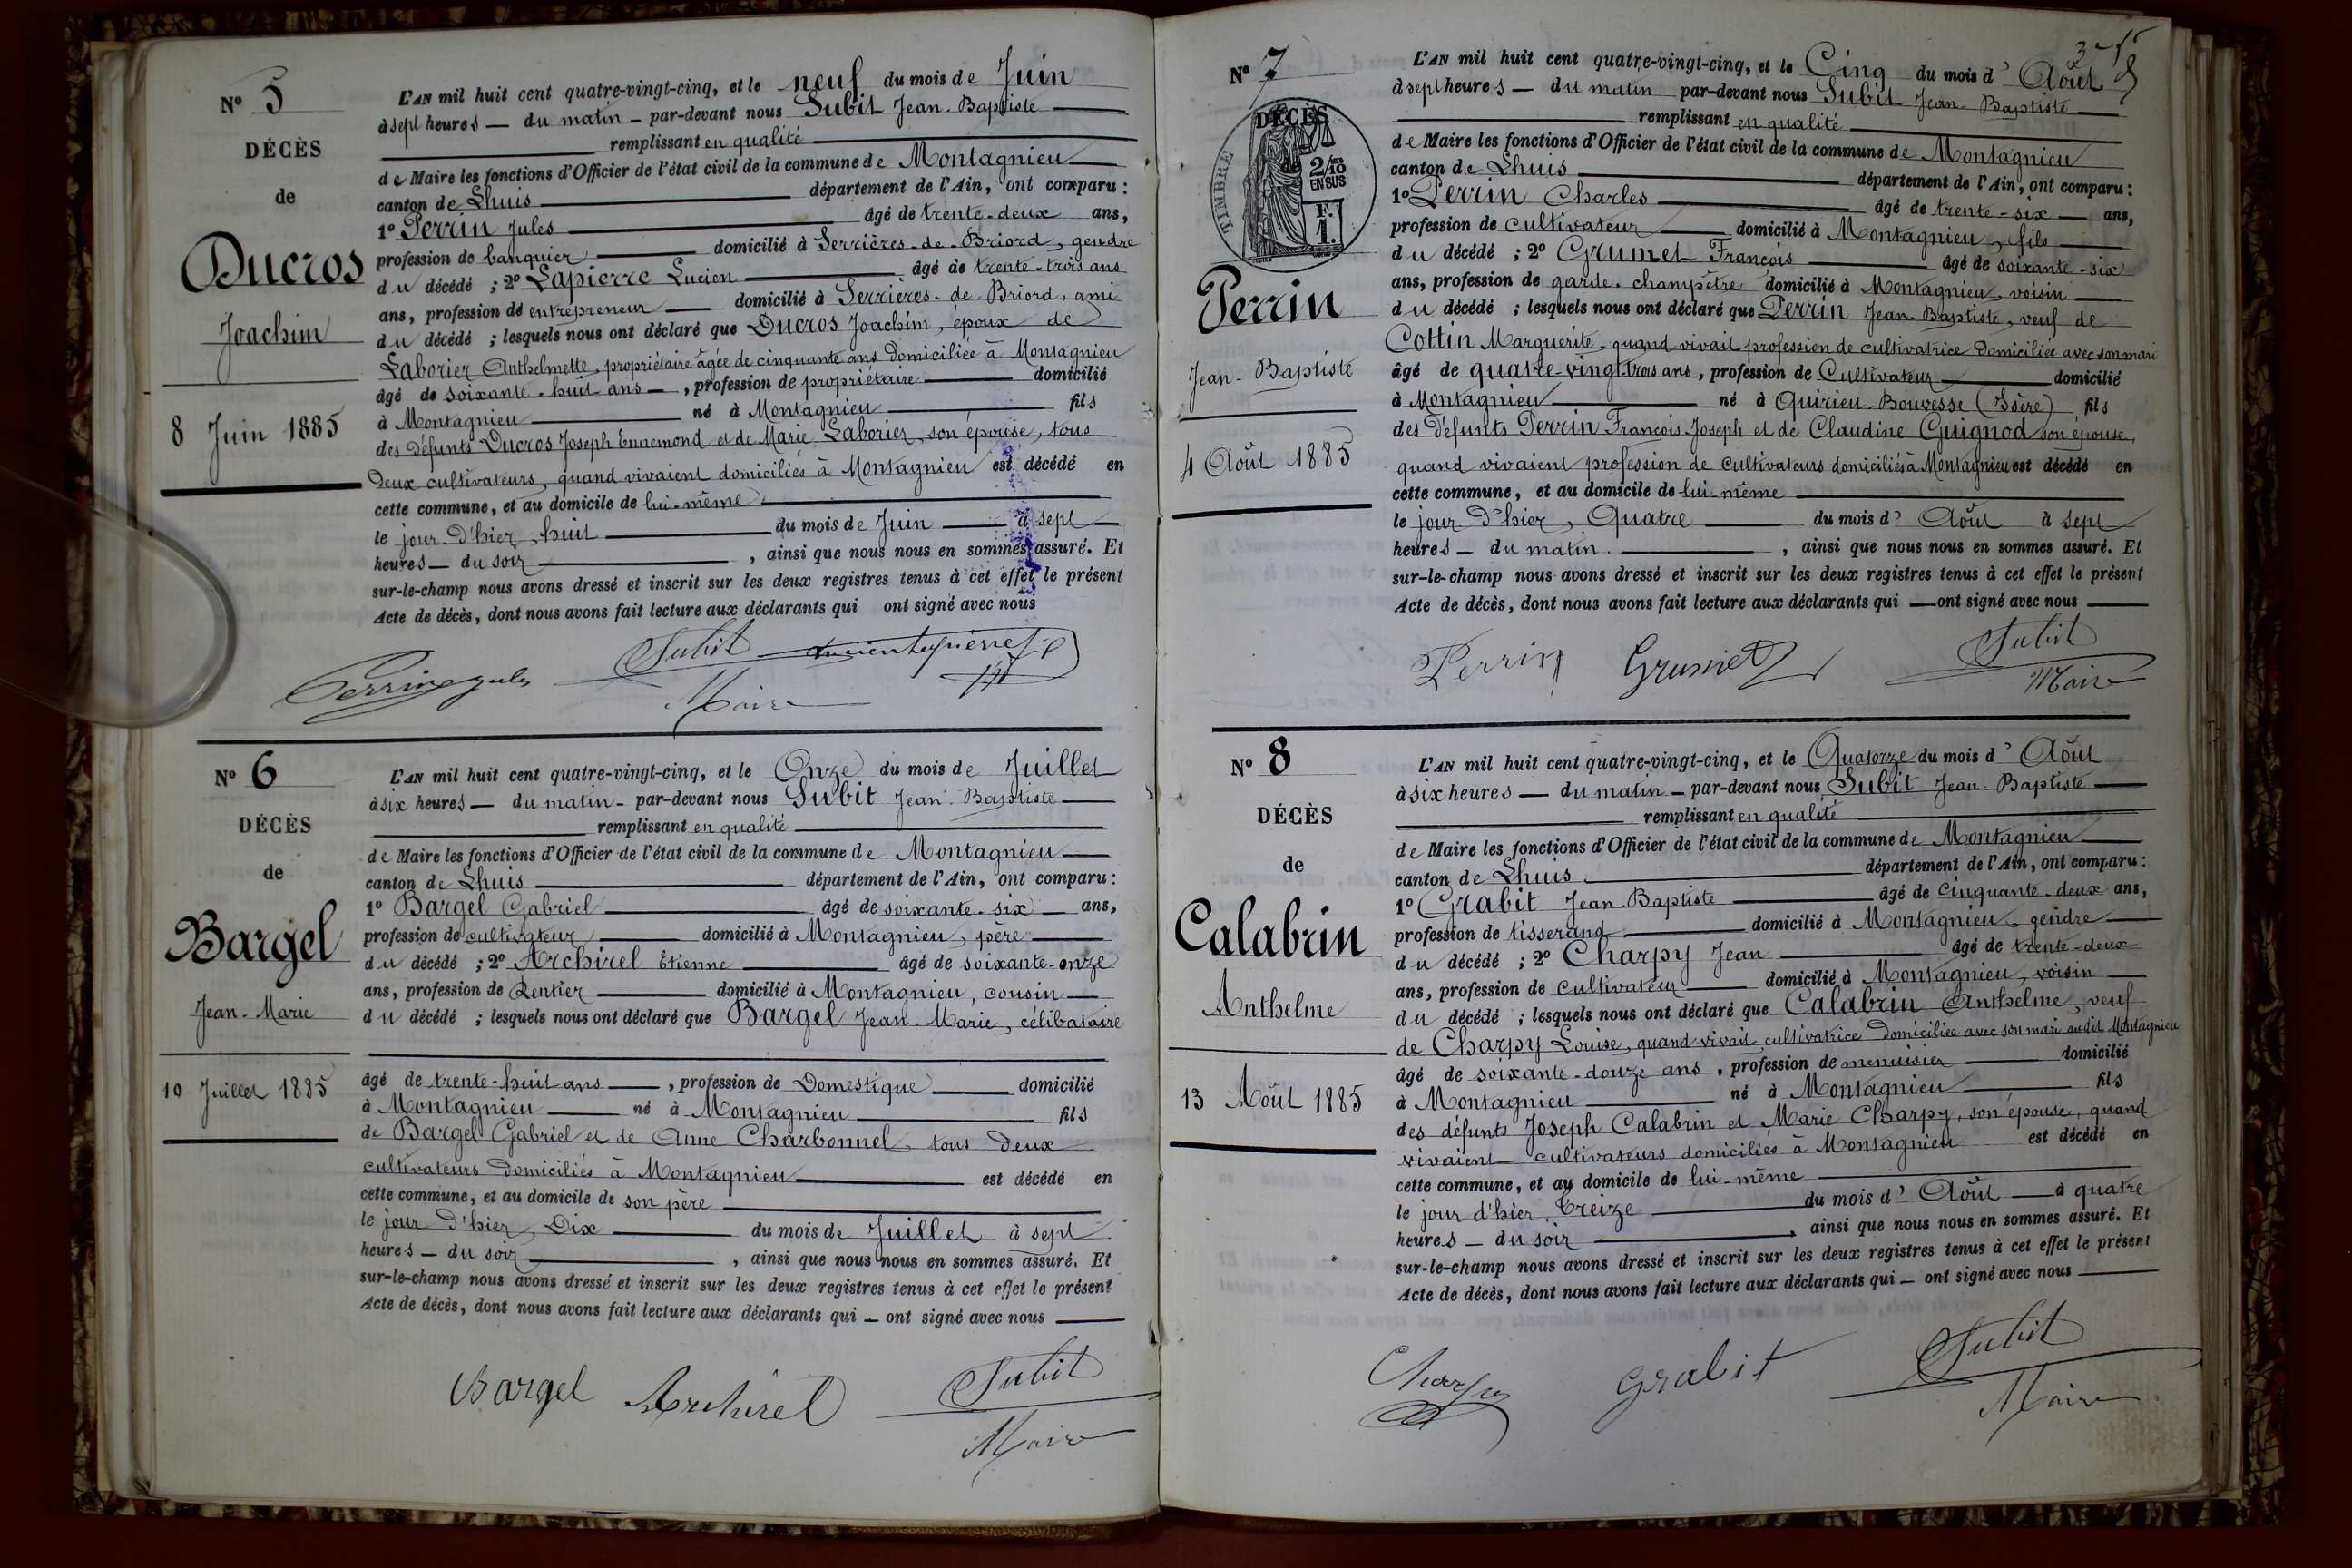 N° 5
DÉCÈS
de
Ducros
Joachim
8 Juin 1885
L'AN mil huit cent quatre-vingt-cinq, et le neuf du mois de Juin
à sept heures — du matin — par-devant nous Subit Jean-Baptiste
remplissant en qualité
de Maire les fonctions d'Officier de l'état civil de la commune de Montagnieu
canton de Lhuis département de l'Ain, ont comparu :
1° Perrin Jules âgé de trente-deux ans,
profession de banquier domicilié à Serrières-de-Briord, gendre
du décédé ; 2° Lapierre Lucien âgé de trente-trois ans
ans, profession de entrepreneur domicilié à Serrières-de-Briord, ami
du décédé ; lesquels nous ont déclaré que Ducros Joachim, époux de
Laborier Anthelmette, propriétaire âgée de cinquante ans domiciliée à Montagnieu
âgé de soixante-huit ans —, profession de propriétaire domicilié
à Montagnieu né à Montagnieu fils
des défunts Ducros Joseph Ennemond et de Marie Laborier, son épouse, tous
deux cultivateurs, quand vivaient domiciliés à Montagnieu est décédé en
cette commune, et au domicile de lui-même
le jour d'hier, huit du mois de Juin à sept
heures — du soir, ainsi que nous nous en sommes assuré. Et
sur-le-champ nous avons dressé et inscrit sur les deux registres tenus à cet effet le présent
Acte de décès, dont nous avons fait lecture aux déclarants qui ont signé avec nous
Perrin Jules Subit Lucien Lapierre
Maire
N° 6
DÉCÈS
de
Bargel
Jean-Marie
10 Juillet 1885
L'AN mil huit cent quatre-vingt-cinq, et le Onze du mois de Juillet
à six heures — du matin — par-devant nous Subit Jean-Baptiste
remplissant en qualité
de Maire les fonctions d'Officier de l'état civil de la commune de Montagnieu
canton de Lhuis département de l'Ain, ont comparu :
1° Bargel Gabriel âgé de soixante-six ans,
profession de cultivateur domicilié à Montagnieu, père
du décédé ; 2° Archirel Etienne âgé de soixante-onze
ans, profession de Rentier domicilié à Montagnieu, cousin
du décédé ; lesquels nous ont déclaré que Bargel Jean-Marie, célibataire
âgé de trente-huit ans —, profession de Domestique domicilié
à Montagnieu né à Montagnieu fils
de Bargel Gabriel et de Anne Charbonnel, tous deux
cultivateurs domiciliés à Montagnieu est décédé en
cette commune, et au domicile de son père
le jour d'hier, Dix du mois de Juillet à sept
heures — du soir, ainsi que nous nous en sommes assuré. Et
sur-le-champ nous avons dressé et inscrit sur les deux registres tenus à cet effet le présent
Acte de décès, dont nous avons fait lecture aux déclarants qui — ont signé avec nous
Bargel Archirel Subit
Maire
N° 7
DÉCÈS
de
TIMBRE
2/10
EN SUS
Perrin
Jean-Baptiste
4 Août 1885
L'AN mil huit cent quatre-vingt-cinq, et le Cinq du mois d'Août
à sept heures — du matin par-devant nous Subit Jean-Baptiste
remplissant en qualité
de Maire les fonctions d'Officier de l'état civil de la commune de Montagnieu
canton de Lhuis département de l'Ain, ont comparu :
1° Perrin Charles âgé de trente-six ans,
profession de cultivateur domicilié à Montagnieu, fils
du décédé ; 2° Grumet François âgé de soixante-six
ans, profession de garde-champêtre domicilié à Montagnieu, voisin
du décédé ; lesquels nous ont déclaré que Perrin Jean-Baptiste, veuf de
Cottin Marguerite, quand vivait profession de cultivatrice domiciliée avec son mari
âgé de quatre-vingt-trois ans, profession de Cultivateur domicilié
à Montagnieu né à Quirieu-Bouvesse (Isère) fils
des défunts Perrin François-Joseph et de Claudine Guignod son épouse,
quand vivaient profession de cultivateurs domiciliés à Montagnieu est décédé en
cette commune, et au domicile de lui-même
le jour d'hier, Quatre du mois d'Août à sept
heures — du matin, ainsi que nous nous en sommes assuré. Et
sur-le-champ nous avons dressé et inscrit sur les deux registres tenus à cet effet le présent
Acte de décès, dont nous avons fait lecture aux déclarants qui — ont signé avec nous
Perrin Grumet Subit
Maire
N° 8
DÉCÈS
de
Calabrin
Anthelme
13 Août 1885
L'AN mil huit cent quatre-vingt-cinq, et le Quatorze du mois d'Août
à six heures — du matin — par-devant nous Subit Jean-Baptiste
remplissant en qualité
de Maire les fonctions d'Officier de l'état civil de la commune de Montagnieu
canton de Lhuis département de l'Ain, ont comparu :
1° Grabit Jean-Baptiste âgé de cinquante-deux ans,
profession de tisserand domicilié à Montagnieu, gendre
du décédé ; 2° Charpy Jean âgé de trente-deux
ans, profession de cultivateur domicilié à Montagnieu, voisin
du décédé ; lesquels nous ont déclaré que Calabrin Anthelme, veuf
de Charpy Louise, quand vivait cultivatrice domiciliée avec son mari audit Montagnieu
âgé de soixante-douze ans, profession de menuisier domicilié
à Montagnieu né à Montagnieu fils
des défunts Joseph Calabrin et Marie Charpy, son épouse, quand
vivaient cultivateurs domiciliés à Montagnieu est décédé en
cette commune, et au domicile de lui-même
le jour d'hier, Treize du mois d'Août à quatre
heures — du soir, ainsi que nous nous en sommes assuré. Et
sur-le-champ nous avons dressé et inscrit sur les deux registres tenus à cet effet le présent
Acte de décès, dont nous avons fait lecture aux déclarants qui — ont signé avec nous
Charpy Grabit Subit
Maire